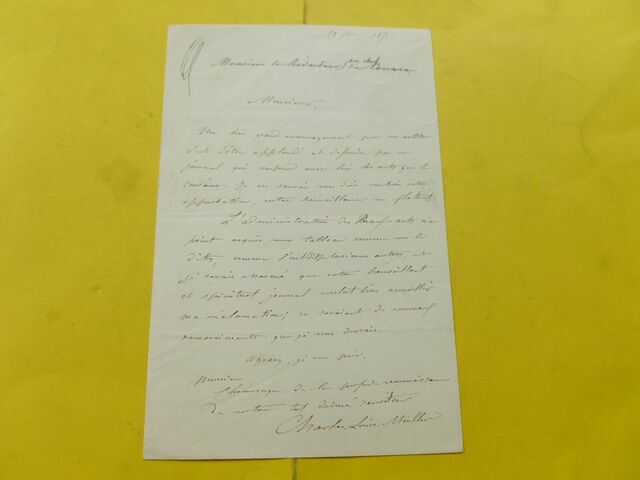 Monsieur le Rédacteur en chef du Corsaire
Monsieur,
Un bien grand encouragement pour un artiste
c'est d'être applaudi et défendu par un
journal qui comprend aussi bien les arts que le
Corsaire. Je ne saurais vous dire combien votre
approbation, votre bienveillance me flattent.
L'administration des Beaux-arts n'a
point acquis mon tableau comme vous le
dites, comme l'ont dit plusieurs autres, et
je serais charmé que votre bienveillant
et spirituel journal voulut bien accueillir
ma réclamation; ce seraient de nouveaux
remerciments que je vous devrais.
Agréez, je vous prie,
Monsieur
l'hommage de la profonde reconnaissance
de votre tout dévoué serviteur
Charles Louis Müller